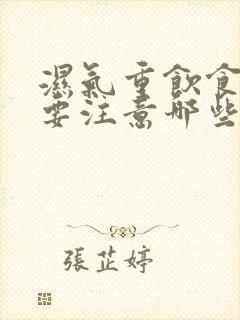 濕氣重飲食
要注意哪些
張芷婷